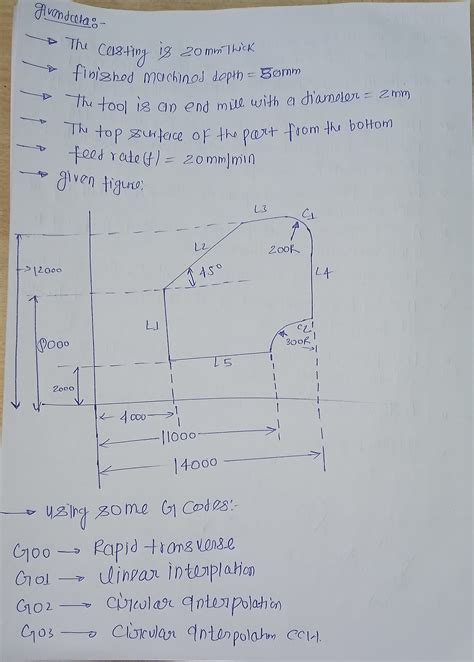 Givendata:-
→ The Casting is 20mm Thick
→ finished machined depth = 50mm
→ The tool is an end mill with a diameter = 2mm
→ The top surface of the part from the bottom
→ feed rate(f) = 20mm/min
→ given figure:
L3
C1
L2
200R
12000
45°
L4
L1
8000
C2
300R
L5
2000
4000
11000
14000
→ using some G Codes:-
G00 → Rapid transverse
G01 → linear interplation
G02 → Circular interpolation
G03 → Circular interpolatn